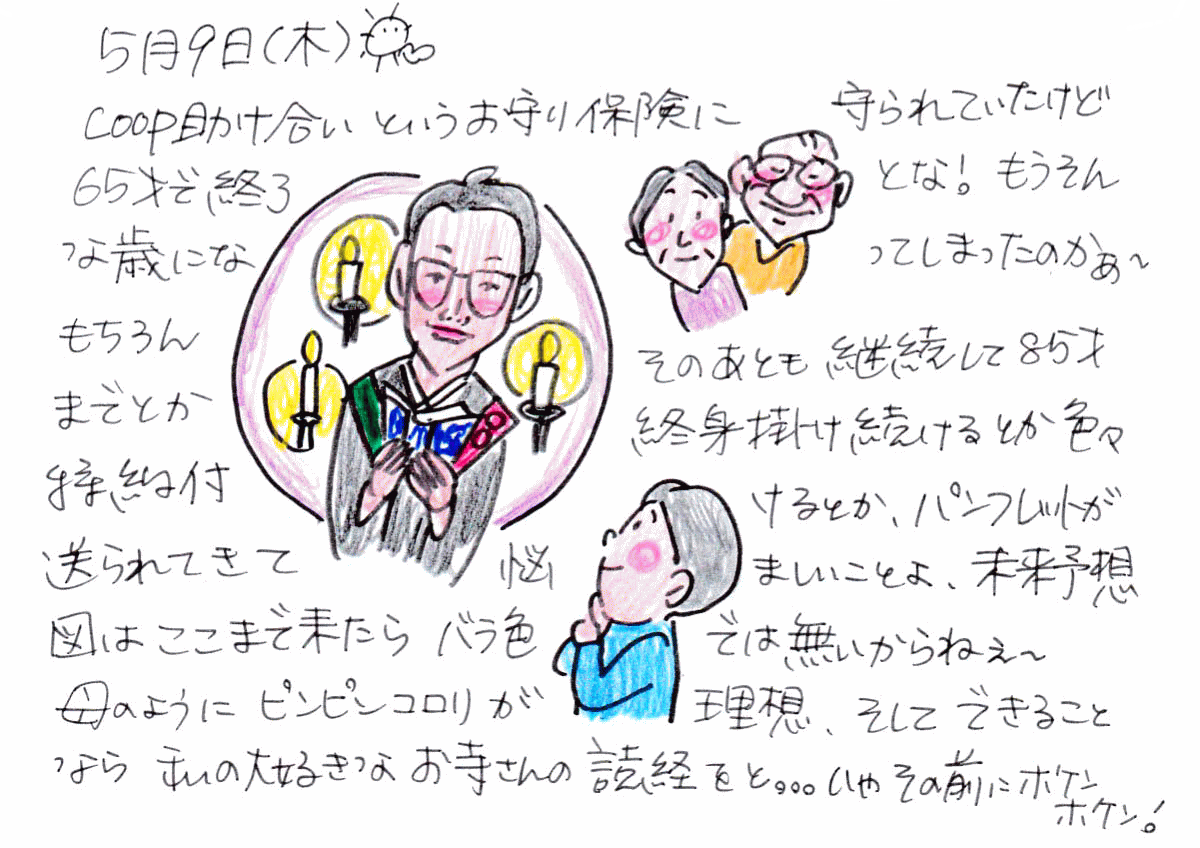 5月9日(木)
COOP助け合いというお守り保険に 守られていたけど
65才で終了 とな! もうそん
な歳にな ってしまったのかぁ~
もちろん そのあとも継続して85才
までとか 終身掛け続けるとか色々
接納付 けるとか、パンフレットが
送られてきて 悩 ましいことよ、未来予想
図はここまで来たらバラ色 では無いからねぇ~
母のようにピンピンコロリが 理想、そしてできること
なら 私の大好きなお寺さんの読経をと...いやその前にホケン
ホケン!